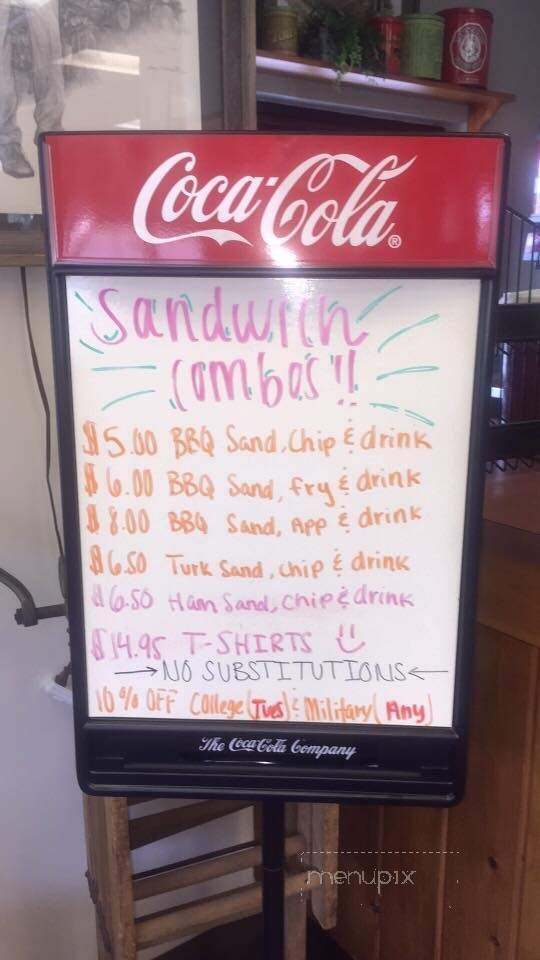 Coca-Cola®
Sandwich
Combos!!
$5.00 BBQ Sand, Chip & drink
$6.00 BBQ Sand, fry & drink
$8.00 BBQ Sand, App & drink
$6.50 Turk Sand, chip & drink
$6.50 Ham Sand, Chip & drink
$14.95 T-SHIRTS
→NO SUBSTITUTIONS←
10% OFF College (Tues) & Military (Any)
The Coca-Cola Company
menupix